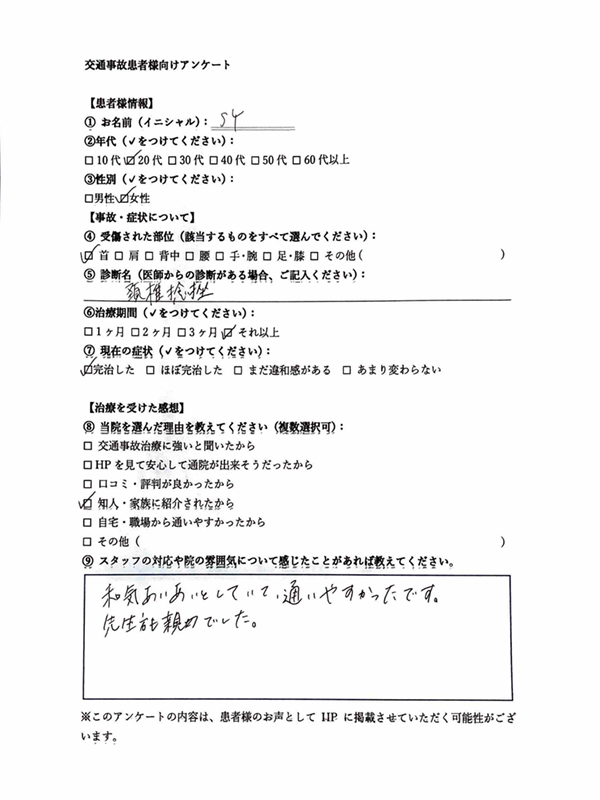 交通事故患者様向けアンケート
【患者様情報】
① お名前（イニシャル）： SY
②年代（✓をつけてください）：
□10代 ☑20代 □30代 □40代 □50代 □60代以上
③性別（✓をつけてください）：
□男性 ☑女性
【事故・症状について】
④ 受傷された部位（該当するものをすべて選んでください）：
☑ 首 □ 肩 □ 背中 □ 腰 □ 手・腕 □ 足・膝 □ その他（ ）
⑤ 診断名（医師からの診断がある場合、ご記入ください）：
頸椎捻挫
⑥治療期間（✓をつけてください）：
□1ヶ月 □2ヶ月 □3ヶ月 ☑ それ以上
⑦ 現在の症状（✓をつけてください）：
☑完治した □ ほぼ完治した □ まだ違和感がある □ あまり変わらない
【治療を受けた感想】
⑧ 当院を選んだ理由を教えてください（複数選択可）：
□ 交通事故治療に強いと聞いたから
□HPを見て安心して通院が出来そうだったから
□ 口コミ・評判が良かったから
☑ 知人・家族に紹介されたから
□ 自宅・職場から通いやすかったから
□ その他（ ）
⑨ スタッフの対応や院の雰囲気について感じたことがあれば教えてください。
和気あいあいとしていて、通いやすかったです。
先生方も親切でした。
※このアンケートの内容は、患者様のお声として HP に掲載させていただく可能性がござ
います。